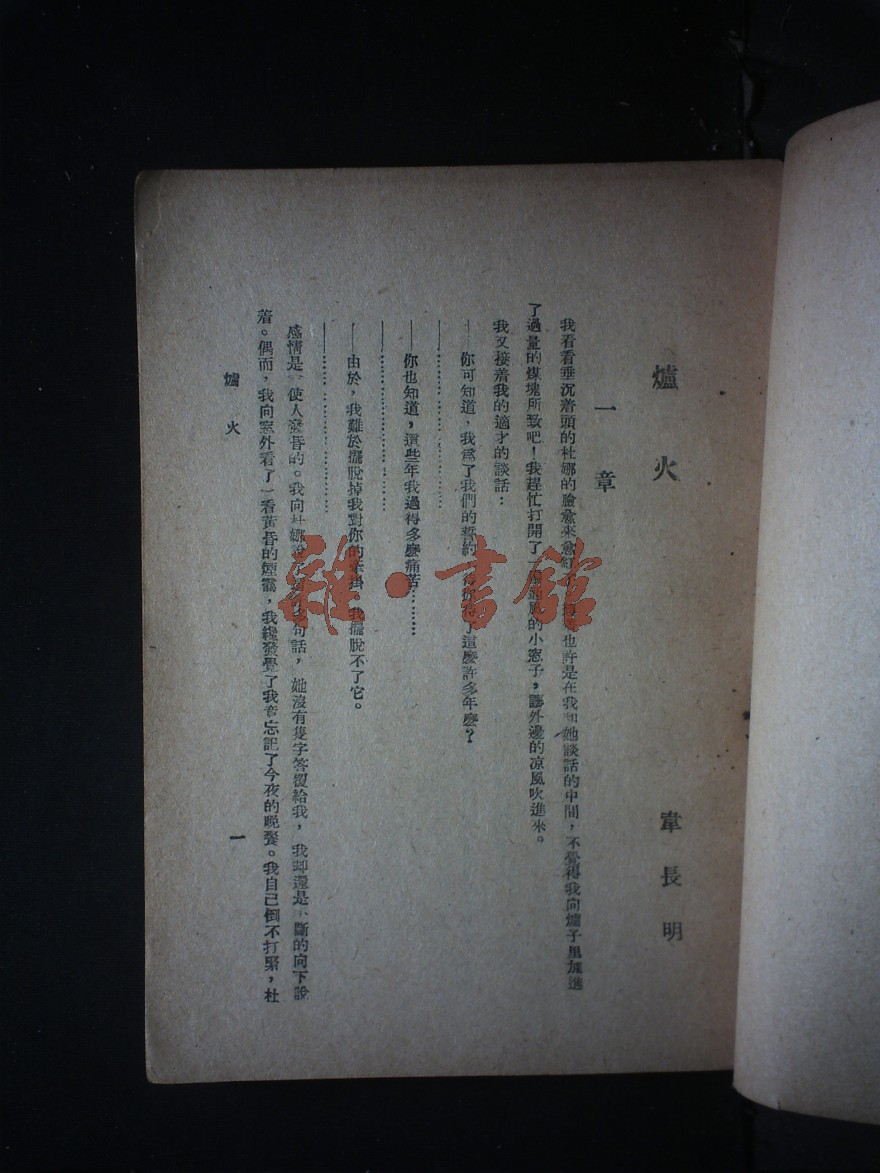 爐火
韋長明
一章
我看看垂沉着頭的杜娜的臉愈來愈紅 也許是在我和她談話的中間，不覺得我向爐子里加進
了過量的煤塊所致吧！我趕忙打開了 的小窓子，讓外邊的凉風吹進來。
我又接着我的適才的談話：
——你可知道，我爲了我們的誓約 了這麽許多年麽？
——…………………………
——你也知道，這些年我過得多麽痛苦………
——…………………………
——由於，我難於擺脫掉我對你的 掛 我擺脫不了它。
——…………………………
感情是 使人發昏的。我向杜娜說了 句話，她沒有隻字答覆給我，我却還是不斷的向下說
着。偶而，我向窓外看了一看黃昏的煙靄，我纔發覺了我竟忘記了今夜的晚餐。我自己倒不打緊，杜
爐火
一
雜·書館